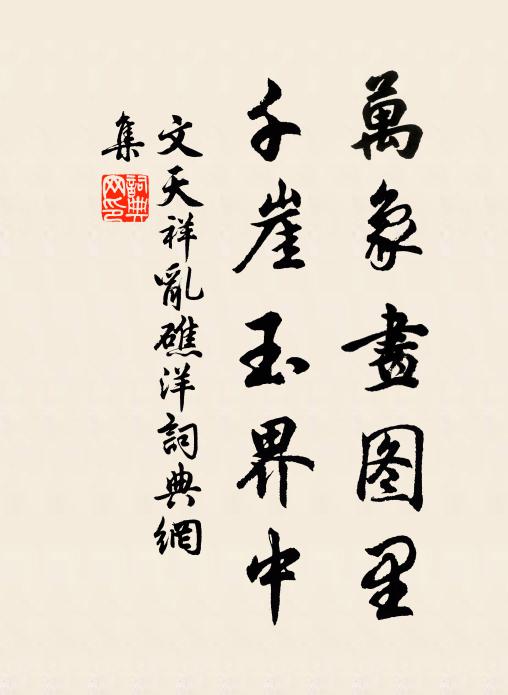 萬象畫图里
千崖玉界中
文天祥亂礁洋詞典網
集
詞典
网印